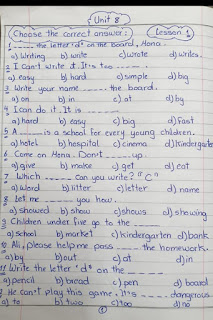 Unit 8
Choose the correct answer: Lesson 1
1 ...... the letter "d" on the Board, Hana.
a) Writing b) write c) wrote d) writes.
2 I can't write it. It's too ......
a) easy b) hard c) simple d) big
3 Write your name ...... the board.
a) on b) in c) at d) by
4 I can do it. It is ......
a) hard b) easy c) big d) Fast
5 A ...... is a school for every young children.
a) hotel b) hospital c) cinema d) kindergarten
6 Come on Hema. Don't ...... up.
a) give b) make c) get d) eat
7 Which ...... can you write? "C"
a) word b) litter c) letter d) name
8 Let me ...... you how.
a) showed b) show c) shows d) showing
9 Children under five go to the ......
a) school b) market c) kindergarten d) bank
10 Ali, please help me pass ...... the homework.
a) by b) out c) at d) in
11 Write the letter "d" on the ......
a) pencil b) bread c) pen d) board
12 He can't play this game. It's ...... dangerous
a) to b) two c) too d) no